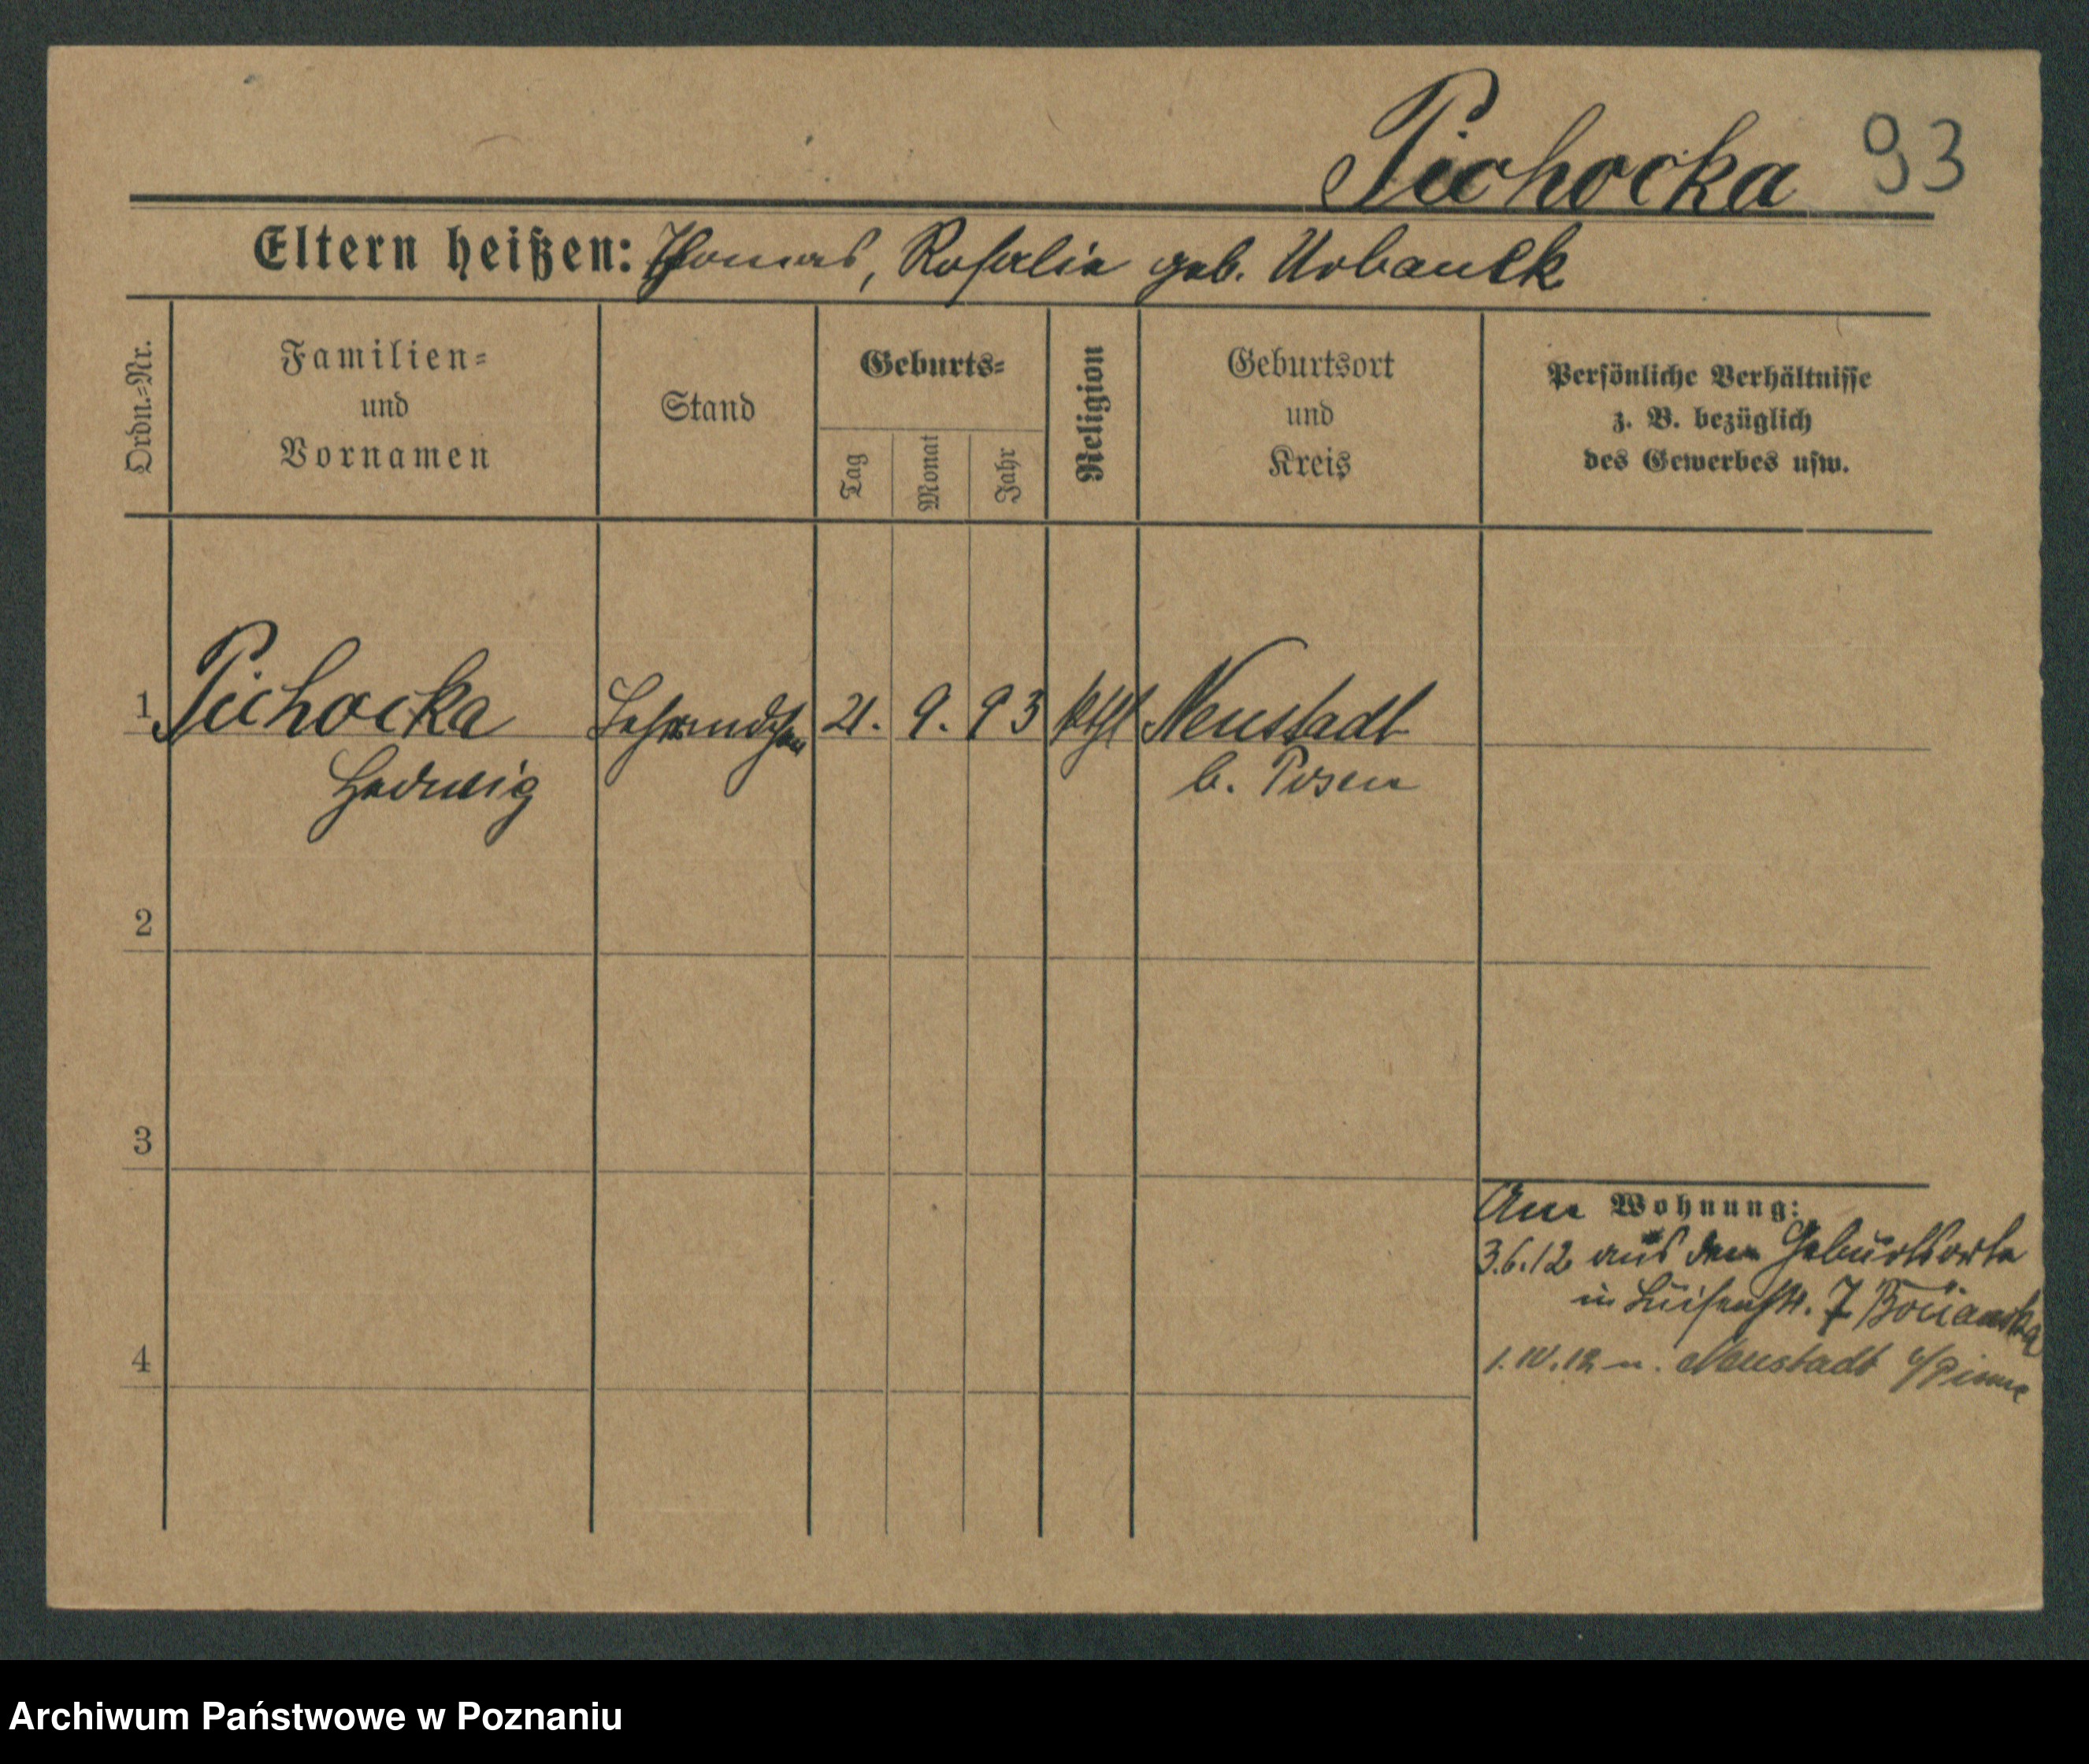 Pichocka 93
Eltern heißen: Thomas, Rosalia geb. Urbanek
Ordn.-Nr.
Familien-
und
Vornamen
Stand
Geburts-
Tag
Monat
Jahr
Religion
Geburtsort
und
Kreis
Persönliche Verhältnisse
z. B. bezüglich
des Gewerbes usw.
1 Pichocka 21. 9. 93 kthl Neustadt
Hedwig b. Posen
2
3
Wohnung:
3.6.12 aus dem Geburtsorte
in Luisenstr. 7
4 1.10.12 n. Neustadt b/Pinne
Archiwum Państwowe w Poznaniu